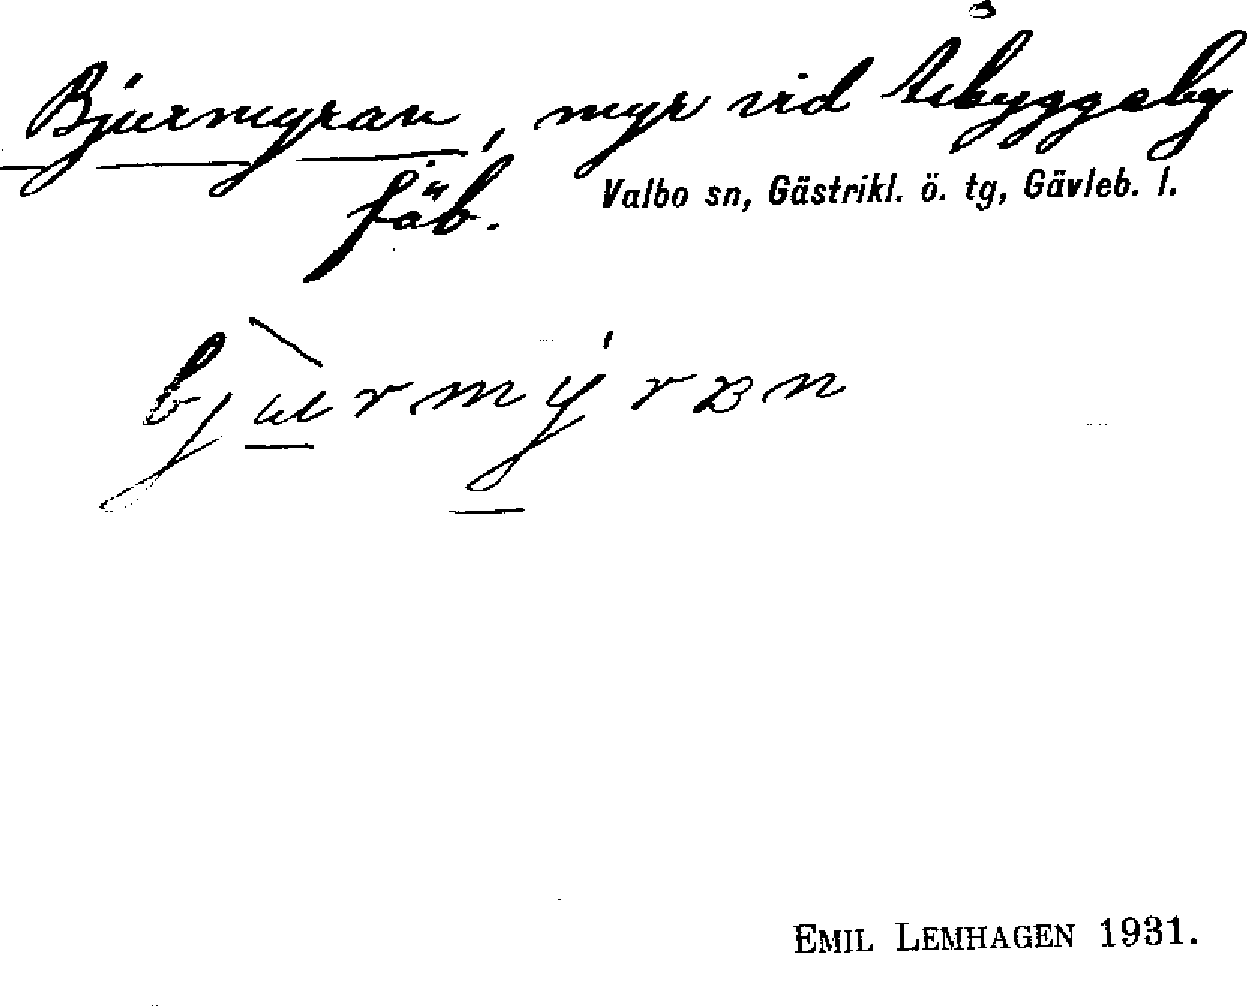 Bjurmyran, myr vid Åbyggeby
fäb. Valbo sn, Gästrikl. ö. tg, Gävleb. l.
bjùrmýran
EMIL LEMHAGEN 1931.